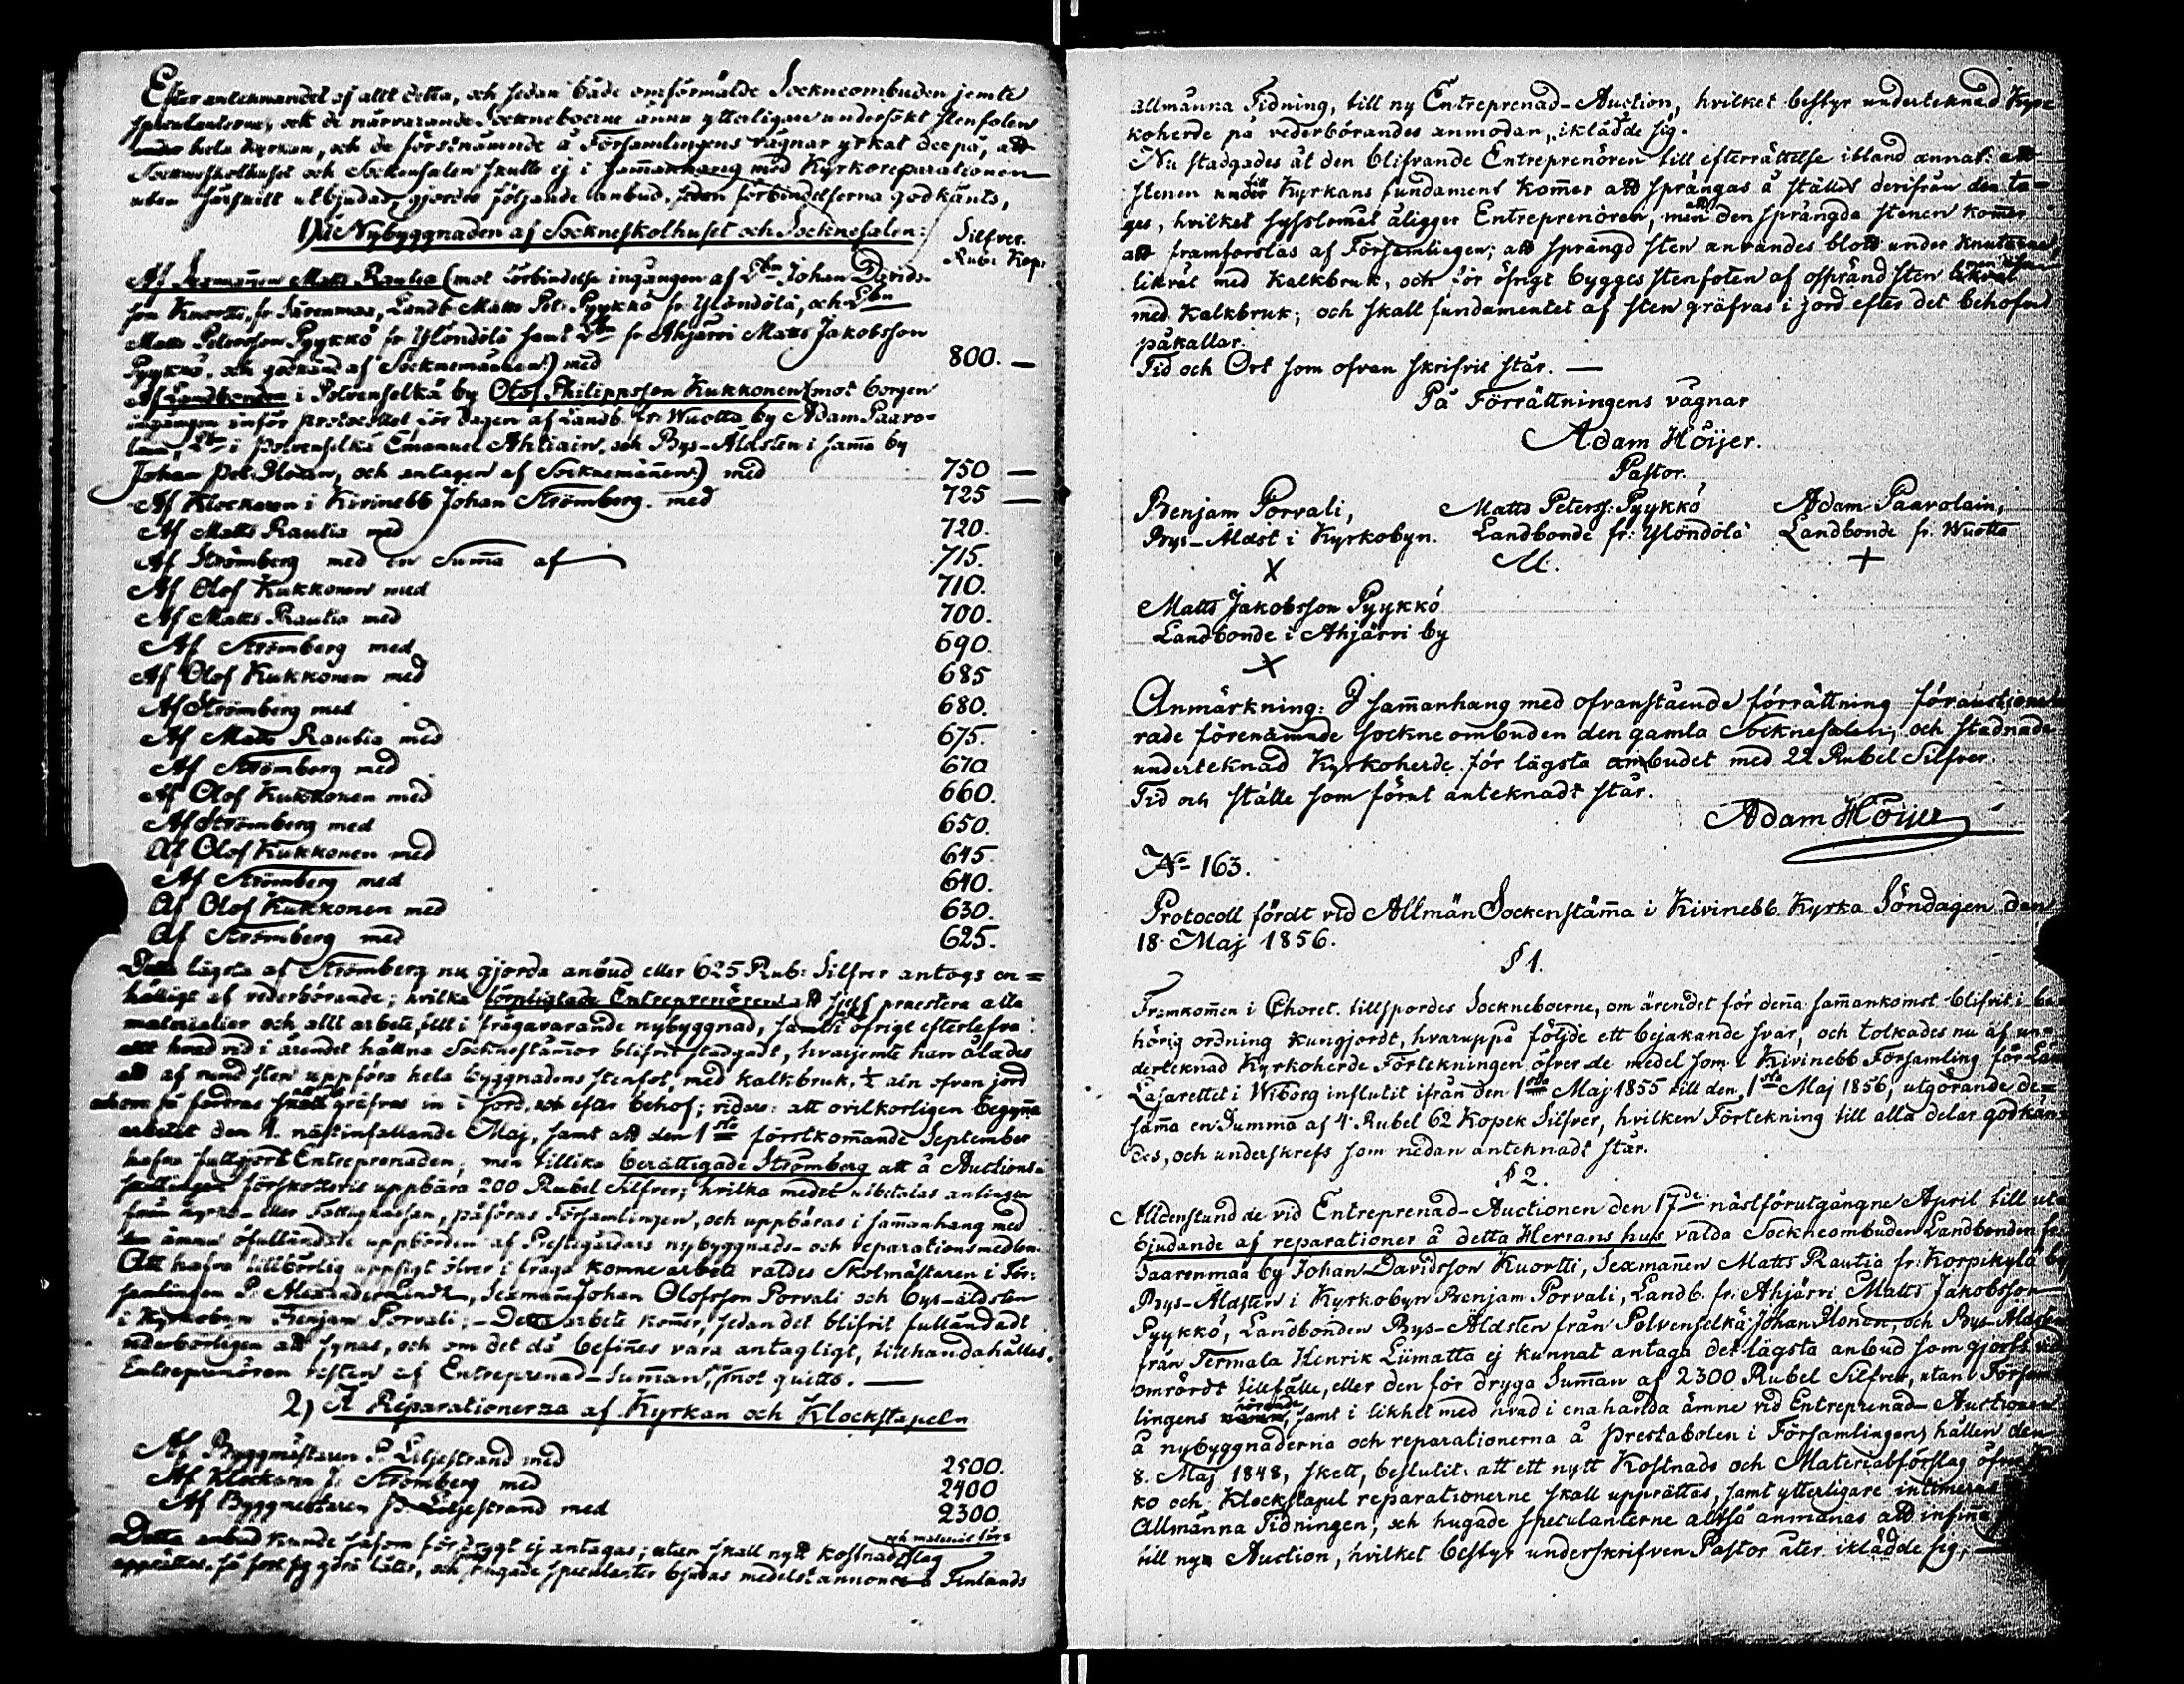 Efter antekmandet af allt detta, och sedan både omförmälde Sockneombuden jemte
speculanterne, och de närvarande Sockneboerne ännu ytterligare undersökt stenfolen
under hela Kyrkan, och de förstnämnde å Församlingens vägnar yrkat derpå, att
Sockneskolhuset och Sockensalen skulle ej i sam̄anhang med Kyrkoreparationen
utan särskilt utbjudas, gjordes följande anbud, sedan förbindelserna godkänts,
1) å Nybyggnaden af Sockneskolhuset och Socknesalen:
Silfver.
Rub: Kop:
Af Sexman̄en Matts Rautia (mot förbindelse ingången af Lbn Johan Davids-
son Kuortti, fr. Säärenmaa, Landb. Matts Pet: Pyykkö fr. Ylöndölä, och Lbn
Matts Petersson Pyykkö fr Ylöndölä samt Lbn fr Ahjärvi Matts Jakobsson
Pyykkö, och godkänd af Socknemän̄en:) med 800. —
Af Landbonden i Polvenselkä by Olof Philippsson Kukkonen (mot borgen
ingången inför protocollet för dagen af Landb. fr: Wuotta by Adam Paavo-
lain, Lbn i Polvenselkä Emanuel Ahtiain, och Bys-Äldsten i sam̄a by
Johan Pet: Ilonen, och antagen af Socknemän̄en:) med 750 —
Af Klockaren i Kivinebb Johan Strömberg. med 725 —
Af Matts Rautia med 720.
Af Strömberg med en Sum̄a af 715.
Af Olof Kukkonen med 710.
Af Matts Rautia med 700.
Af Strömberg med 690.
Af Olof Kukkonen med 685
Af Strömberg med 680.
Af Matts Rautia med 675.
Af Strömberg med 670
Af Olof Kukkonen med 660.
Af Strömberg med 650.
Af Olof Kukkonen med 645.
Af Strömberg med 640.
Af Olof Kukkonen med 630.
Af Strömberg med 625.
Detta lägsta af Strömberg nu gjorda anbud eller 625 Rub: Silfver antogs en=
hälligt af vederbörande; hvilka förpligtade Entreprenören att sjelf præstera alla
materialier och allt arbete till i frågavarande nybyggnad, samt i öfrigt efterlefva
allt hvad vid i ärendet hållna Sockenstäm̄or blifvit stadgadt, hvarjemte han ålades
att af rund sten uppföra hela byggnadens stenfot, med kalkbruk, ½ aln ofvan jord
gräfvas in i jord, och efter behof; vidare: att ovilkorligen begyn̄a
arbetet den 4. nästinfallande Maj, samt att den 1sta förstkom̄ande September
hafva fullgjort Entreprenaden; men tillika berättigade Strömberg att å Auctions-
skillingen förskottsvis uppbära 200 Rubel Silfver; hvilka medel utbetalas antingen
från Kyrko- eller Fattigkassan, påföras Församlingen, och uppbäras i sam̄anhang med
den ännu ofulländade uppbörden af Prestegårdars nybyggnads- och reparationsmedlen.
Att hafva tillbörlig uppsigt öfver i fråga kom̄e arbete valdes Skolmästaren i För-
samlingen P. Alexander Lindh, Sexman̄ Johan Olofsson Porvali och bys-äldsten
i Kyrkobyn Benjam Porvali; — Detta arbete kom̄er, sedan det blifvit fulländadt
vederbörligen att synas, och om det då befin̄es vara antagligt, tillhandahålles
Entreprenören resten af Entreprenad-Sum̄an, mot quitto. —
2) Å Reparationerna af Kyrkan och Klockstapeln
Af Byggmästaren P. Liljestrand med 2500.
Af Klockaren J: Strömberg med 2400
Af Byggmestaren P. Liljestrand med 2300.
Detta anbud kunde såsom för drygt ej antagas; utan skall nytt kostnads och materialförslag
upprättas, så fort sig göra låter, och hugade speculanter bjudas medelst annonce i Finlands
allmänna Tidning, till ny Entreprenad-Auction, hvilket bestyr underteknad Kyr-
koherde på vederbörandes anmodan, iklädde sig.
Nu stadgades åt den blifvande Entreprenören till efterrättelse ibland annat: att
stenen till Kyrkans fundament kom̄er att sprängas å stället derifrån den ta-
ges, hvilket sysslomål åligger Entreprenören, men att den sprängda stenen kom̄er
att framforslas af Församlingen; att sprängd sten användes blott under knutarne
likväl med kalkbruk, och för öfrigt bygges stenfoten af ospränd sten
med kalkbruk; och skall fundamentet af sten gräfvas i jord efter det behofvet
påkallar.
Tid och Ort som ofvan skrifvit står. —
På Förrättningens vägnar
Adam Höijer.
Pastor.
Benjam Porvali, Matts Peterss: Pyykkö Adam Paavolain,
Bys-Äldst i Kyrkobyn. Landbonde fr: Ylöndölä Landbonde fr. Wuotta
X M. +
Matts Jakobsson Pyykkö
Landbonde i Ahjärvi by
X
Anmärkning: I sam̄anhang med ofvanstående förrättning förauctione-
rade förenämnde sockneombuden den gamla Socknesalen, och stadnade
underteknad Kyrkoherde för lägsta anbudet med 22 Rubel Silfver.
Tid och ställe som förut anteknadt står.
Adam Höijer
No 163.
Protocoll fördt vid Allmän Sockenstäm̄a i Kivinebb Kyrka Söndagen den
18. Maj 1856.
§ 1.
Framkom̄en i Choret tillspordes Sockneboerne, om ärendet för den̄a sam̄ankomst blifvit i be-
hörig ordning kungjordt, hvaruppå följde ett bejakande svar, och tolkades nu af un-
derteknad Kyrkoherde Förtekningen öfver de medel som i Kivinebb Församling för Läns
Lasarettet i Wiborg influtit ifrån den 1sta Maj 1855 till den 1sta Maj 1856, utgörande de-
sam̄a en Summa af 4 Rubel 62 Kopek Silfver, hvilken Förtekning till alla delar godkän-
des, och underskrefs som nedan anteknadt står.
§ 2.
Alldenstund de vid Entreprenad-Auctionen den 17de nästförutgångne April till ut-
bjudande af reparationer å detta Herrans hus valda Sockneombuden Landbonden fr:
Saarenmaa by Johan Davidsson Kuortti, Sexman̄en Matts Rautia fr: Korpikylä by
Bys-Äldsten i Kyrkobyn Benjam Porvali, Landb. fr: Ahjärvi Matts Jakobsson
Pyykkö, Landbonden Bys-Äldsten från Polvenselkä Johan Ilonen, och Bys-Äldsten
från Termala Henrik Liimatta ej kunnat antaga det lägsta anbud som gjorts vid
omrördt tillfälle, eller den för dryga Sum̄an af 2300 Rubel Silfver, utan Försam-
lingens hörande, samt i likhet med hvad i enahanda ämne vid Entreprenad-Auctionen
å nybyggnaderna och reparationerna å Prestabolen i Församlingen hållen den
8. Maj 1848, skett, beslutit: att ett nytt Kostnads och Materialförslag öfver
ko och Klockstapel reparationerne skall upprättas, samt ytterligare intimeras
Allmänna Tidningen; och hugade speculanterne altså anmanas att infin̄a
till ny Auction, hvilket bestyr underskrifven Pastor åter iklädde sig. —